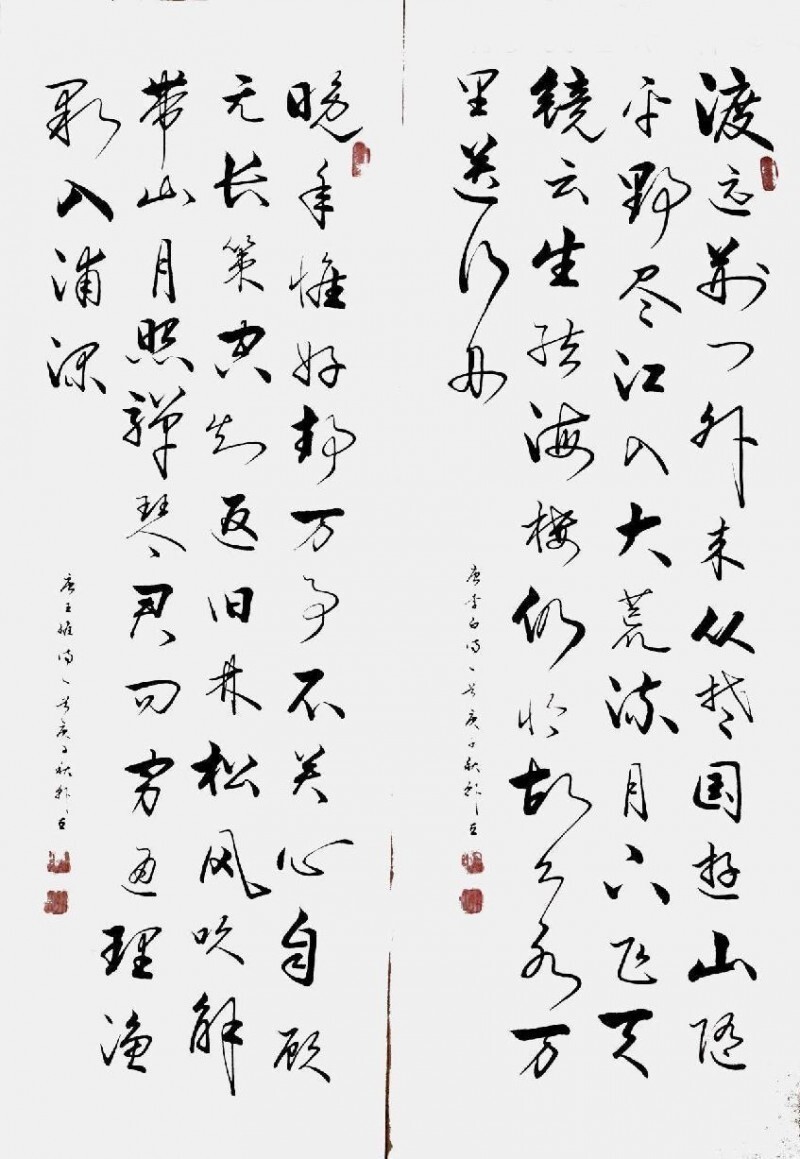 渡远荆门外来从楚国游山随
平野尽江入大荒流月下飞天
镜云生结海楼仍怜故乡水万
里送行舟
唐李白诗一首庚子秋
晚年惟好静万事不关心自顾
无长策空知返旧林松风吹解
带山月照弹琴君问穷通理渔
歌入浦深
唐王维诗一首庚子秋